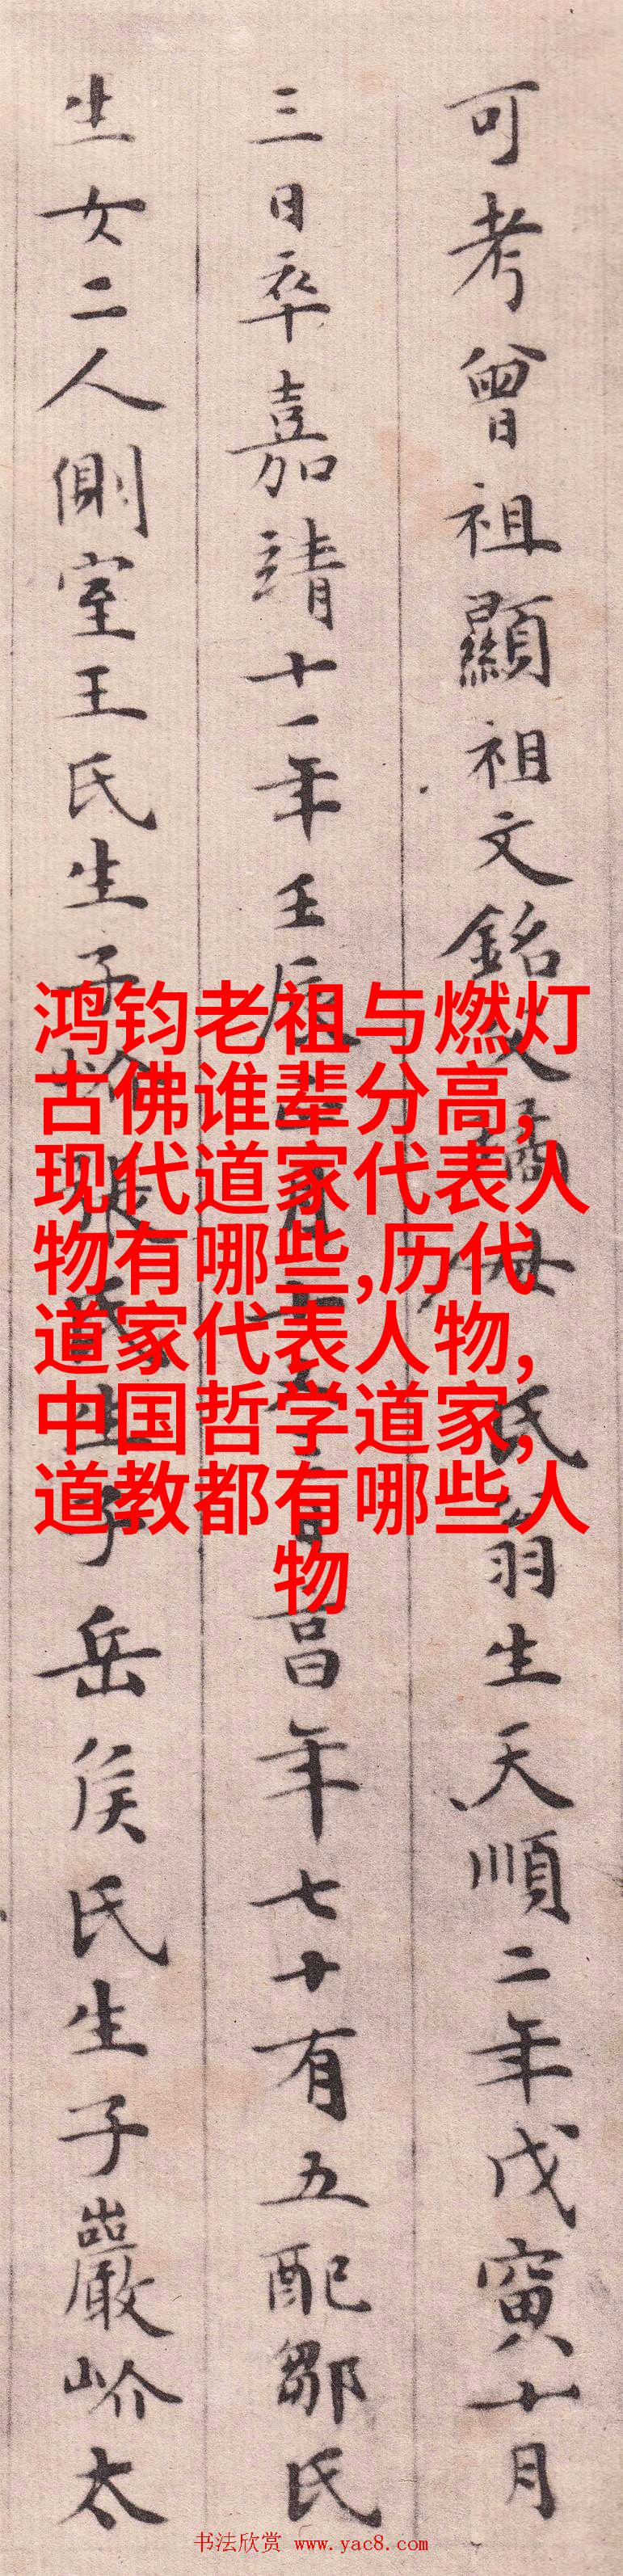 可考曾祖顯祖文銘父母氏翁生天順二年戊寅十月
三日卒嘉靖十一年壬辰年七十有五配鄒氏
生女二人側室王氏生子張氏生子岳侯氏生子巖岕太
鸿钧老祖与燃灯
古佛谁辈分高,
现代道家代表人
物有哪些,历代
道家代表人物,
中国哲学道家,
道教都有哪些人
物
书法欣赏 www.yac8.com